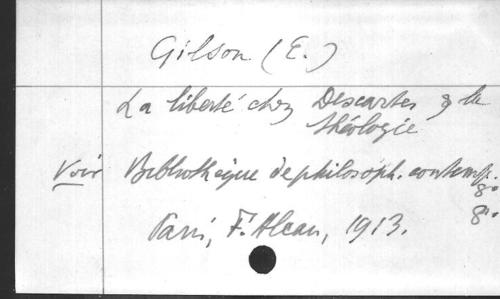 Gilson (E.)
La liberté chez Descartes & la
théologie
Voir Bibliothèque de philosoph. contemp.
8°
8°.
Paris, F. Alcan, 1913.